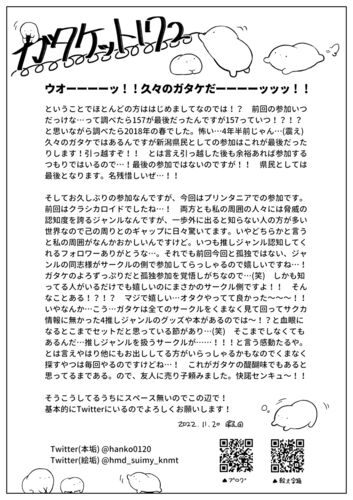 ガタケット172
ウオーーーーッ！！久々のガタケだーーーーッッッ！！
ということでほとんどの方ははじめましてなのでは！？　前回の参加いつ
だっけな…って調べたら157が最後だったんですが157っていつ！？！？
と思いながら調べたら2018年の春でした。怖い…4年半前じゃん…(震え)
久々のガタケではあるんですが新潟県民としての参加はこれが最後だった
りします！引っ越すぞ！！　とは言え引っ越した後も余裕あれば参加する
つもりではいるので…！最後の参加ではないのですが！！　県民としては
最後となります。名残惜しいぜ…！！
そしてお久しぶりの参加なんですが、今回はプリンタニアでの参加です。
前回はクラシカロイドでしたね…！　両方とも私の周囲の人々には脅威の
認知度を誇るジャンルなんですが、一歩外に出ると知らない人の方が多い
世界なので己の周りとのギャップに日々驚いてます。いやどちらかと言う
と私の周囲がなんかおかしいんですけど。いつも推しジャンル認知してく
れるフォロワーありがとうな…。それでも前回今回と孤独ではない、ジャ
ンルの同志様がサークルの側で参加してらっしゃるので嬉しいですね…！
ガタケのよろずっぷりだと孤独参加を覚悟しがちなので…(笑)　しかも知
ってる人がいるだけでも嬉しいのにまさかのサークル側ですよ！！　そん
なことある！？！？　マジで嬉しい…オタクやってて良かった～～～！！
いやなんか…こう…ガタケは全てのサークルをくまなく見て回ってサクカ
情報に無かった4推しジャンルのグッズや本があるのでは～！？と血眼に
なるとこまでセットだと思っている節があり…(笑)　そこまでしなくても
あるんだ…推しジャンルを扱うサークルが……！！！と言う感動たるや。
とは言えやはり他にもお出ししてる方がいらっしゃるかもなのでくまなく
探すやつは毎回やるのですけどね…！　これがガタケの醍醐味でもあると
思ってるまである。ので、友人に売り子頼みました。快諾センキュ〜！！
そうこうしてるうちにスペース無いのでこの辺で！
基本的にTwitterにいるのでよろしくお願いします！
2022.11.20
Twitter(本垢) @hanko0120
Twitter(絵垢) @hmd_suimy_knmt
▲ブログ
▲絵文字箱